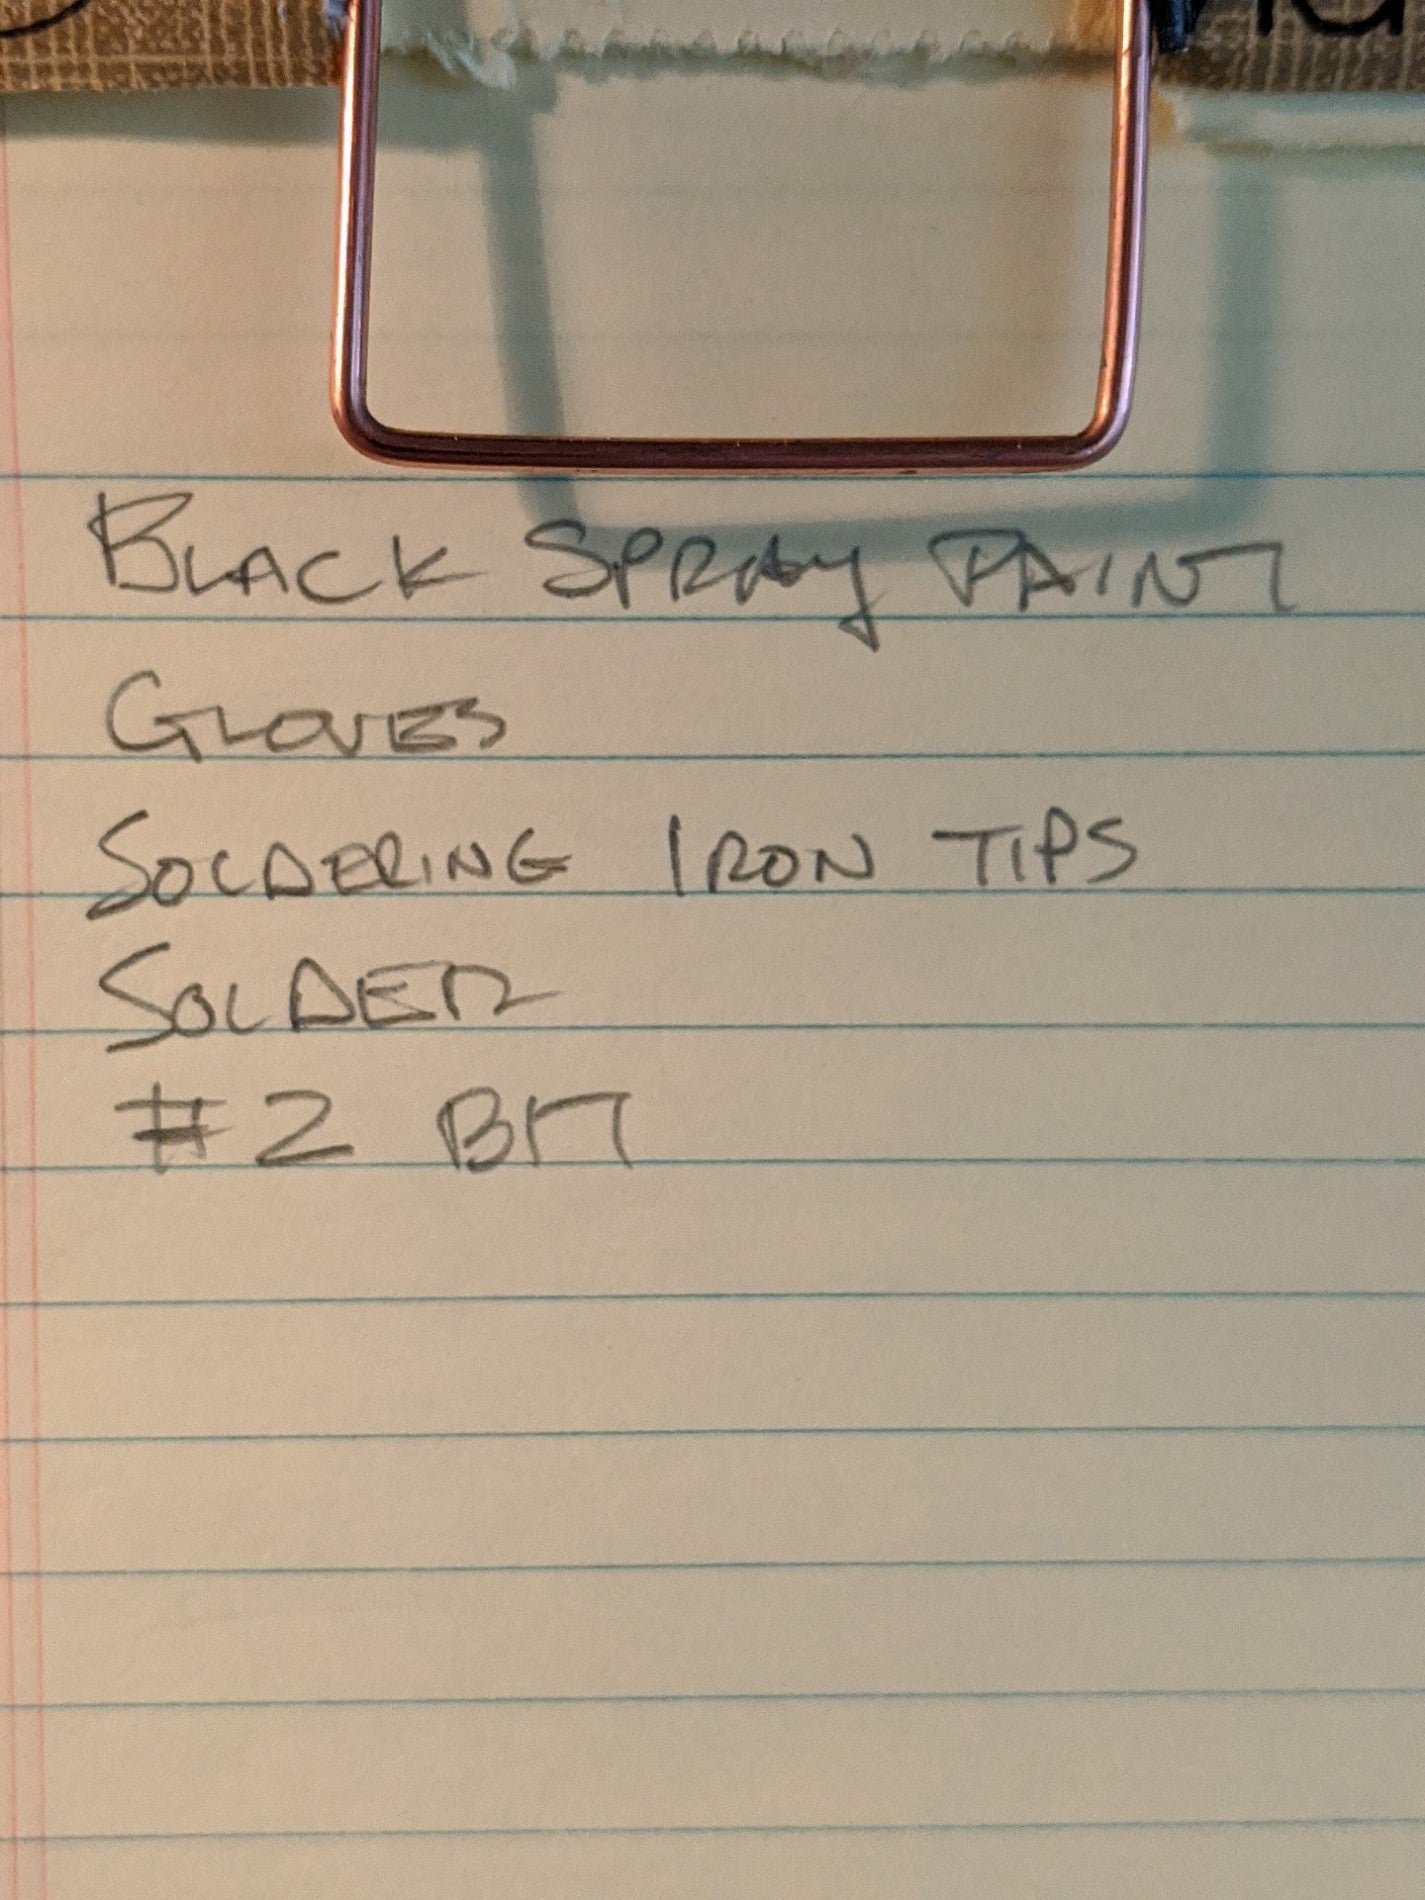 BLACK SPRAY PAINT
GLOVES
SOLDERING IRON TIPS
SOLDER
#2 BIT